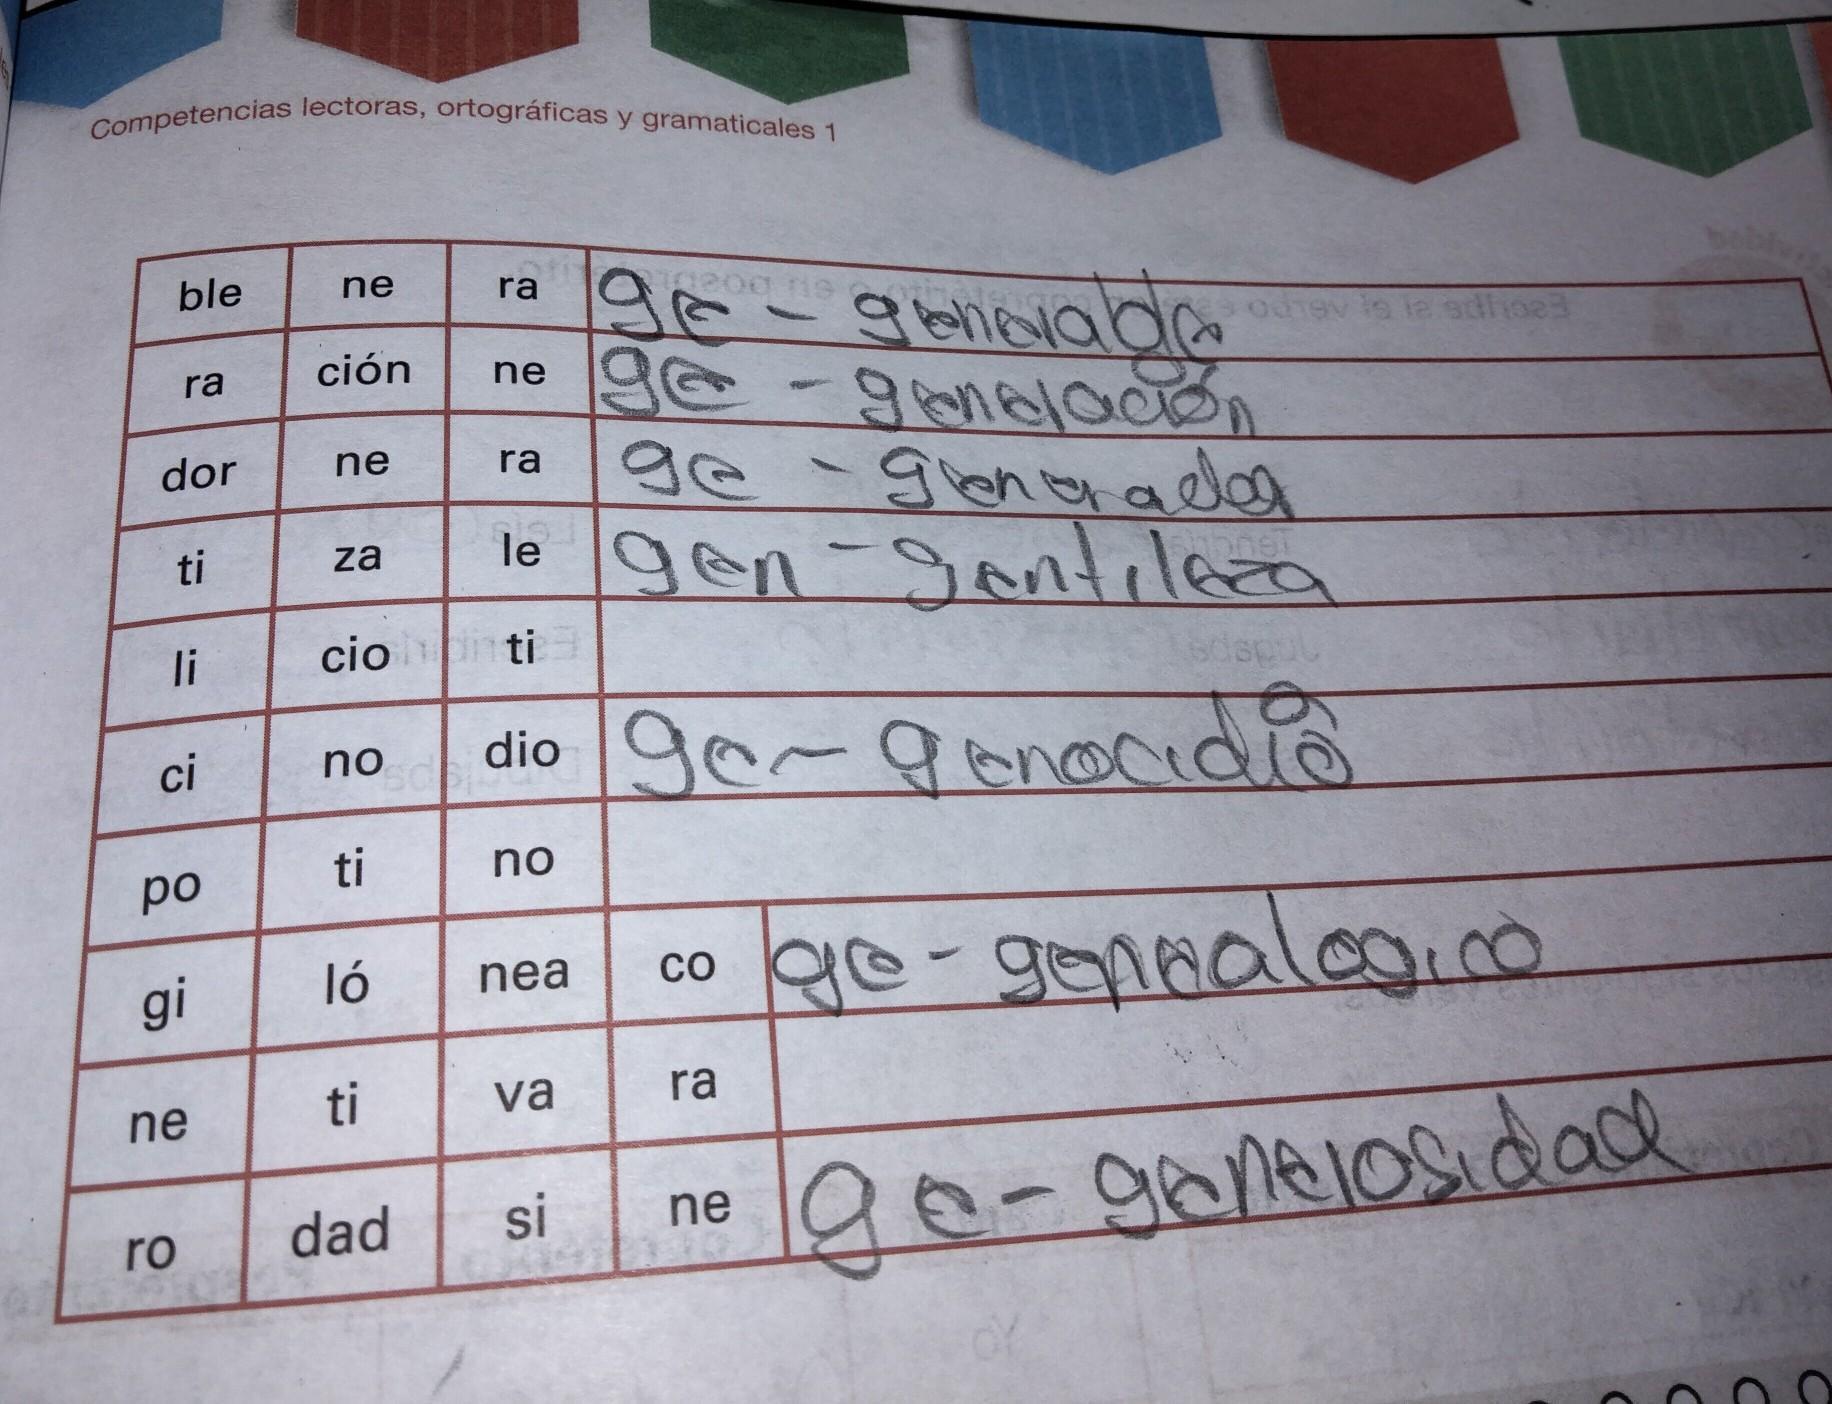 Competencias lectoras, ortográficas y gramaticales 1
ble ne ra ge - generable
ra ción ne ge - generación
dor ne ra ge - generador
ti za le gen - gentileza
li cio ti
ci no dio ge - genocidio
po ti no
gi ló nea co ge - genealogico
ne ti va ra
ro dad si ne ge - generosidad